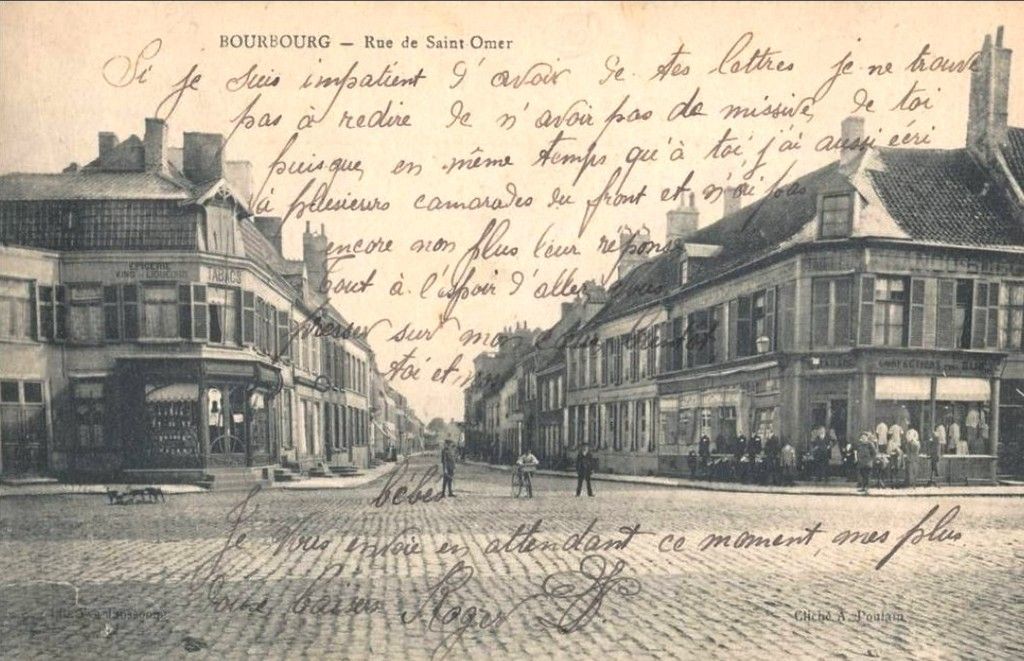 BOURBOURG — Rue de Saint Omer
Si je suis impatient d'avoir de tes lettres je ne trouve
pas à redire de n'avoir pas de missive de toi
puisque en même temps qu'à toi j'ai aussi écri
à plusieurs camarades du front et n'ai pas
encore non plus leur réponse
tout à l'espoir d'aller vous
presser sur mon cœur bientôt
toi et mon
bébés
Je vous envoie en attendant ce moment, mes plus
doux baisers Roger
EPICERIE
VINS LIQUEURS
TABACS
CONFECTIONS
Cliché A. Poulain